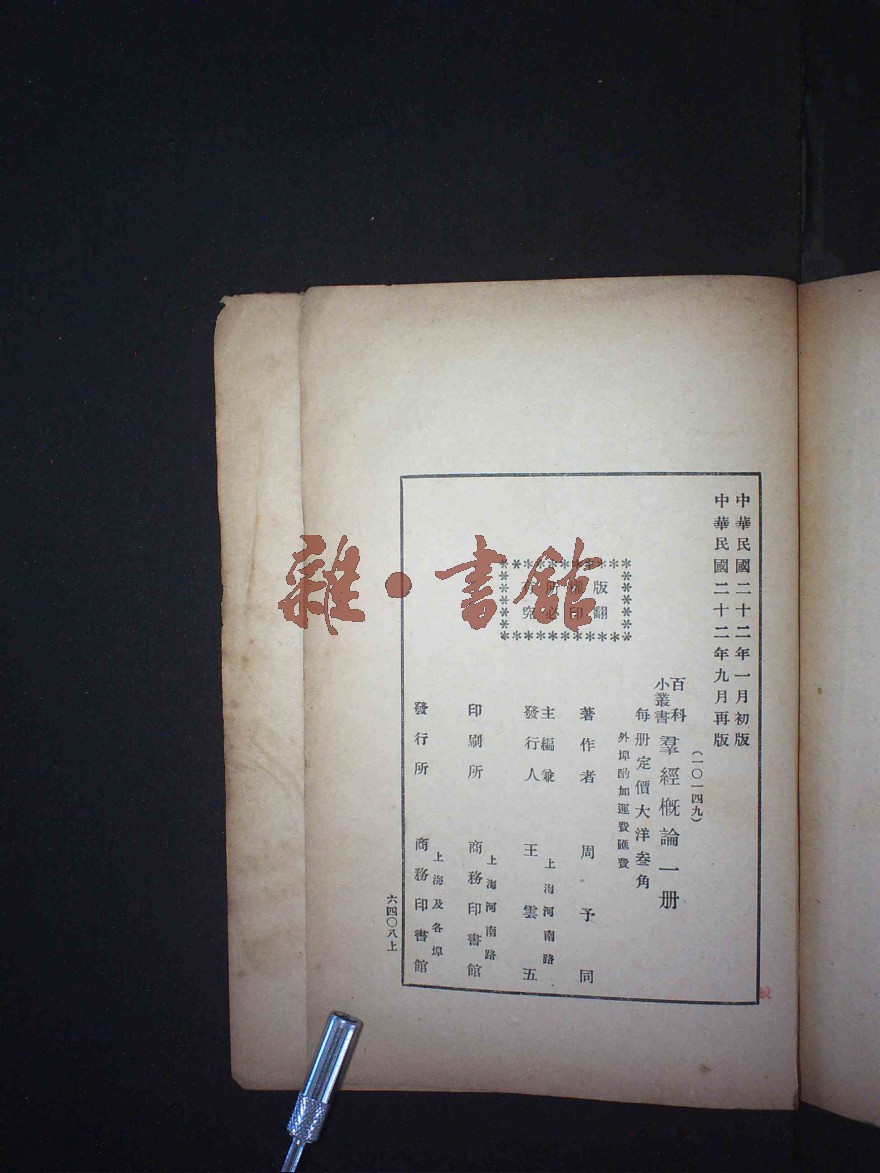 中華民國二十二年一月初版
中華民國二十二年九月再版
(一〇一四九)
百科
小叢書
羣經概論一册
每册定價大洋叁角
外埠酌加運費匯費
版權所有
翻印必究
著作者 周予同
主編兼
發行人
上海河南路
王雲五
印刷所
上海河南路
商務印書館
發行所
上海及各埠
商務印書館
六四〇八上
雜·書館